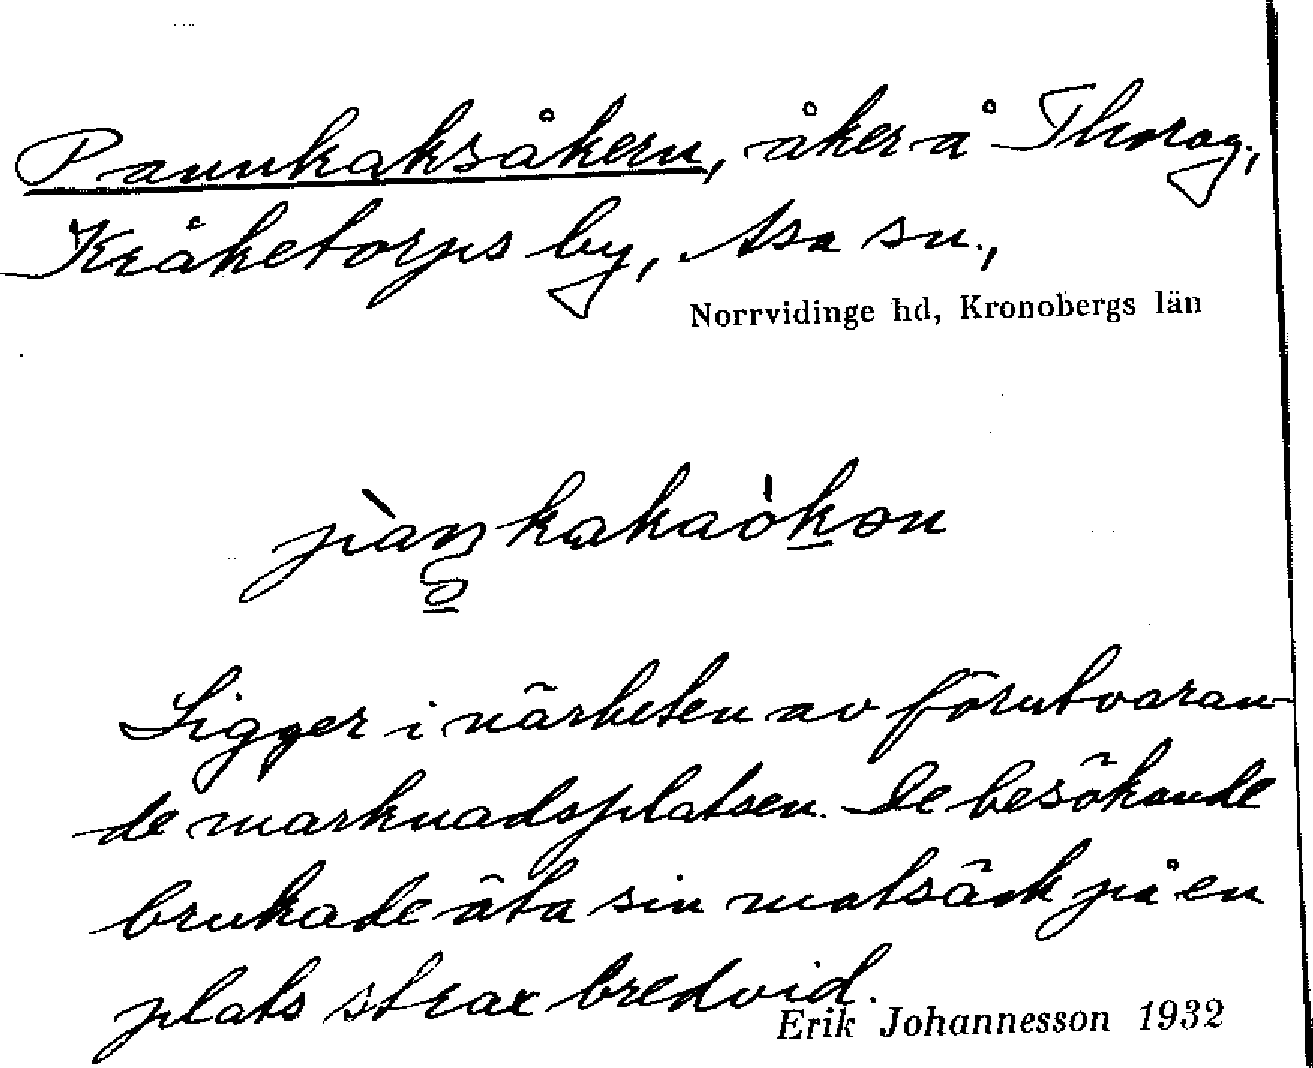 Pannkaksåkern, åker å Thorsg.,
Kråketorps by, Asa sn.,
Norrvidinge hd, Kronobergs län
Ligger i närheten av förutvaran-
de marknadsplatsen. De besökande
brukade äta sin matsäck på en
plats strax bredvid.
Erik Johannesson 1932